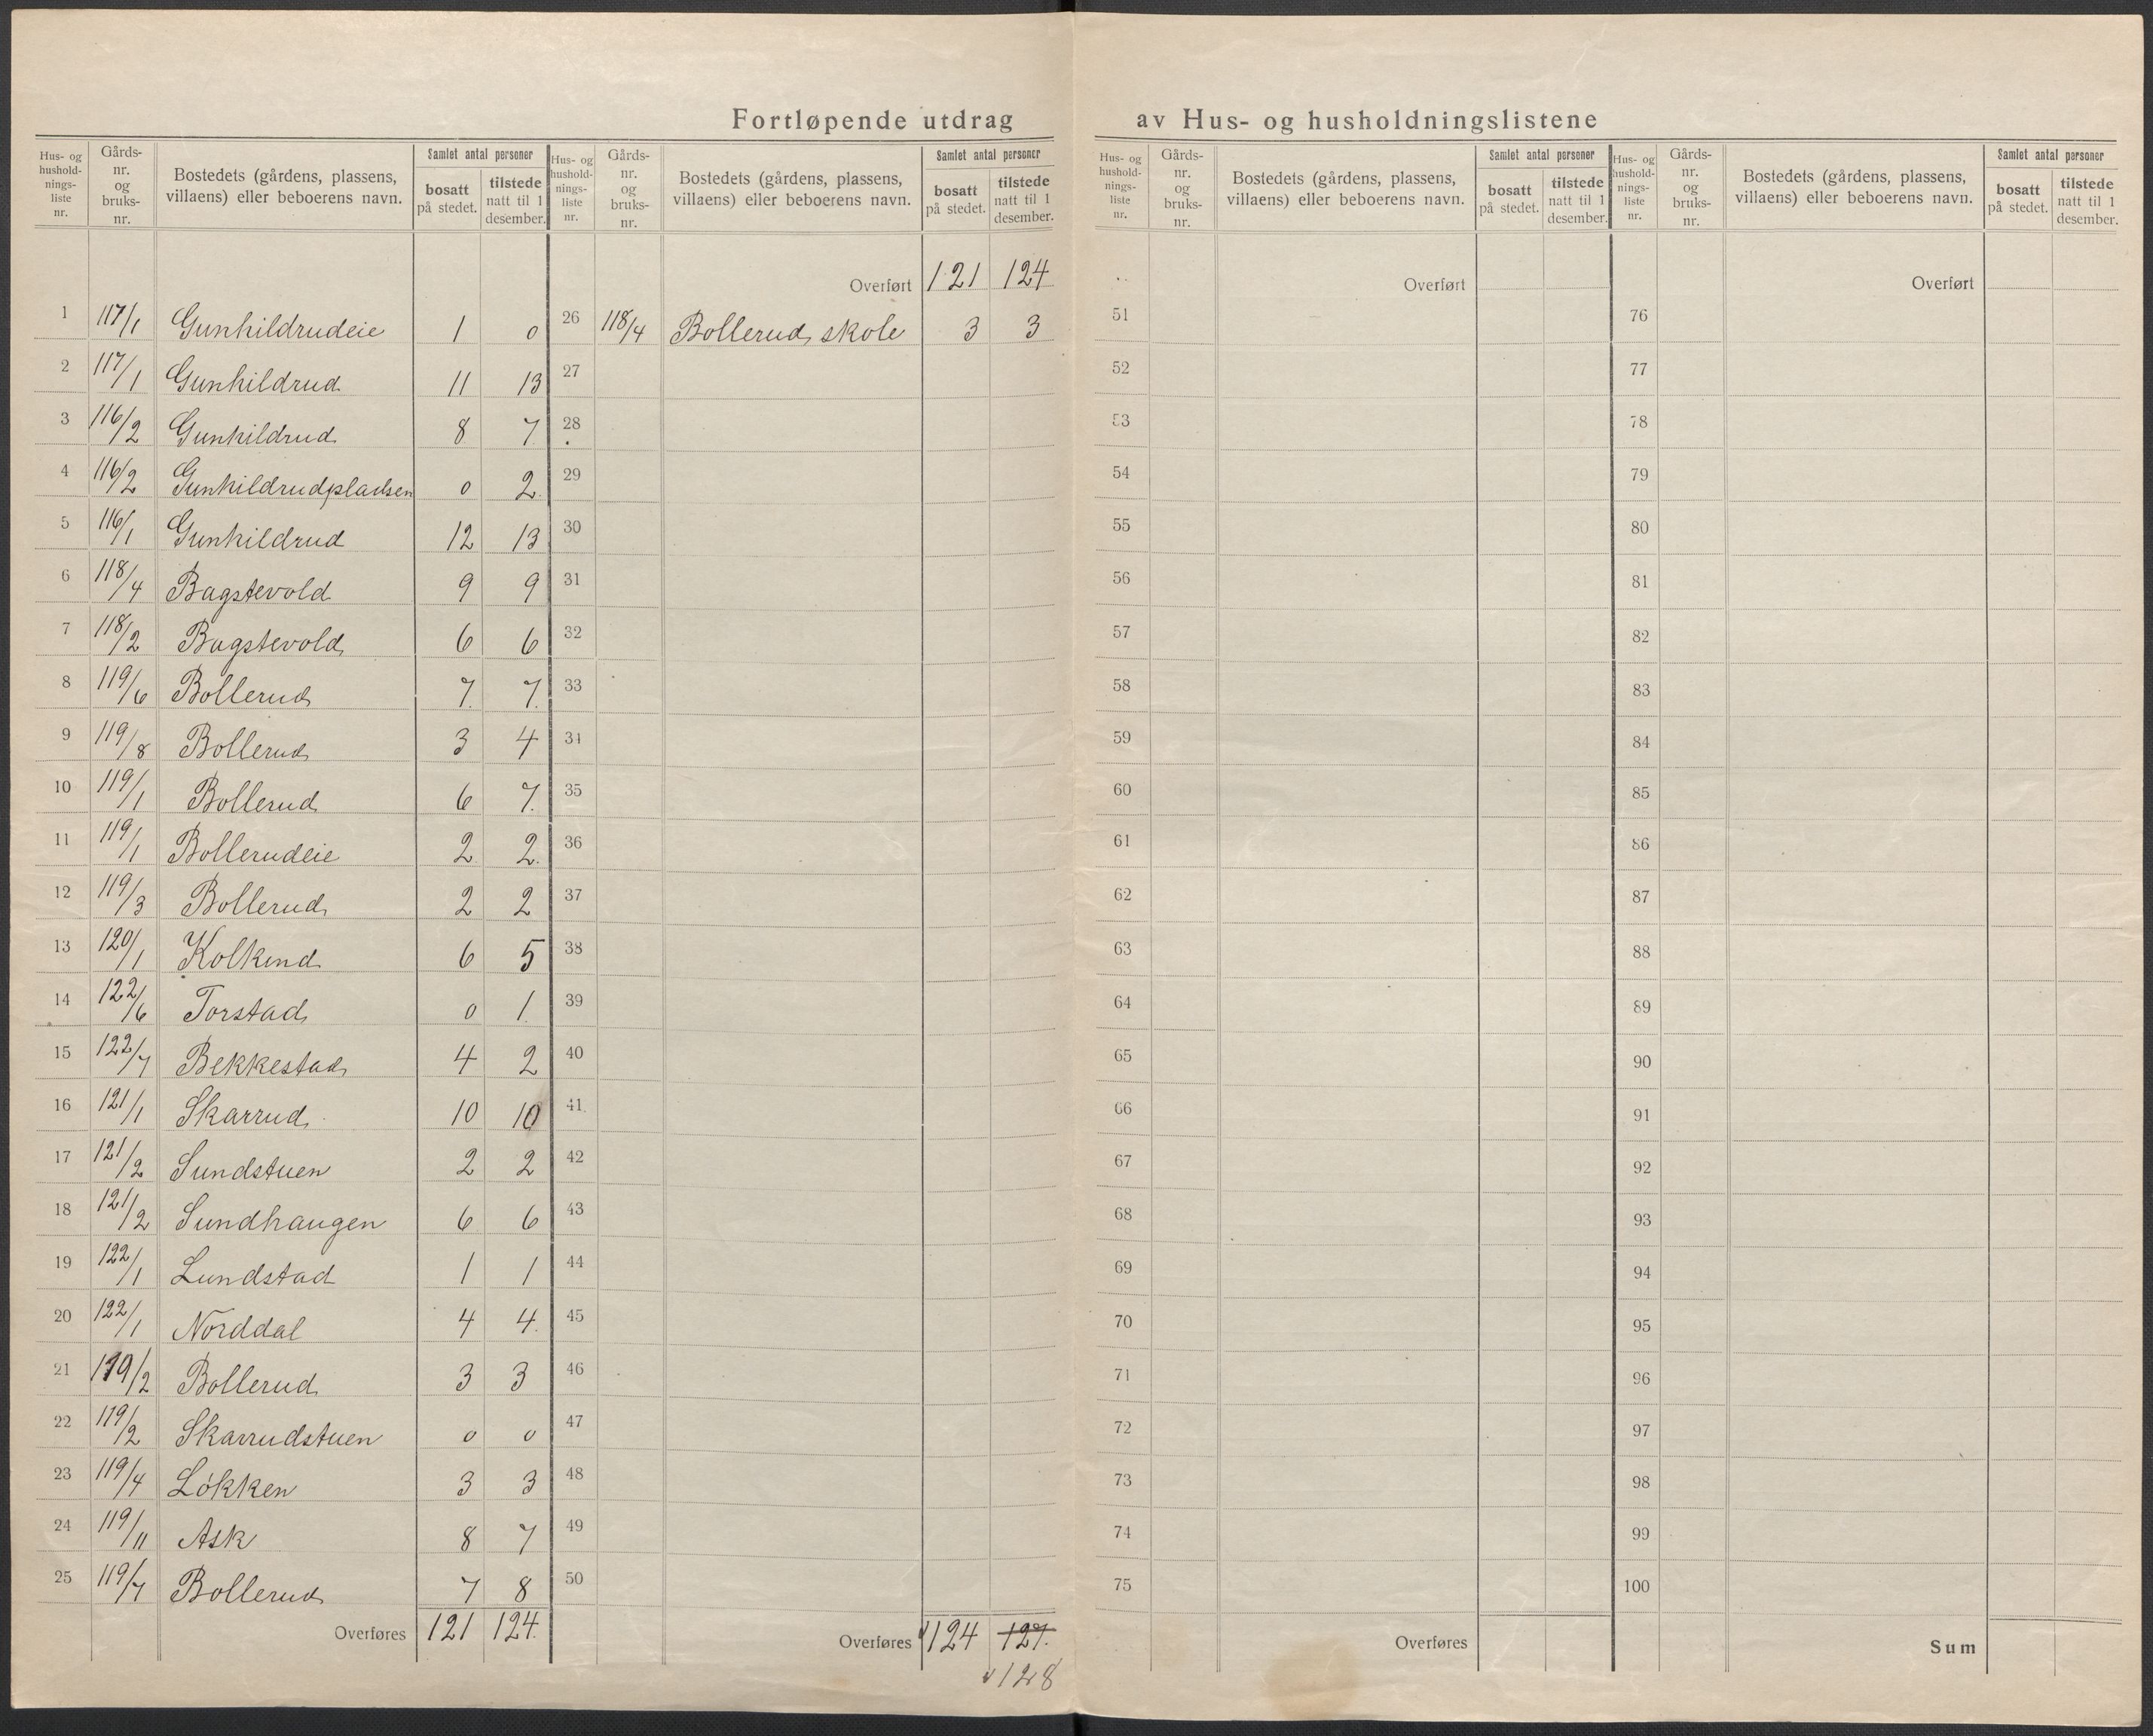 Fortløpende utdrag av Hus- og husholdningslistene
Hus- og hushold- nings- liste nr.
Gårds- nr. og bruks- nr.
Bostedets (gårdens, plassens, villaens) eller beboerens navn.
Samlet antal personer
bosatt på stedet.
tilstede natt til 1 desember.
1 117/1 Gunhildrudeie 1 0
2 117/1 Gunhildrud 11 13
3 116/2 Gunhildrud 8 7
4 116/2 Gunhildrudpladsen 0 2
5 116/1 Gunhildrud 12 13
6 118/4 Bagstevold 9 9
7 118/2 Bagstevold 6 6
8 119/6 Bollerud 7 7
9 119/8 Bollerud 3 4
10 119/1 Bollerud 6 7
11 119/1 Bollerudeie 2 2
12 119/3 Bollerud 2 2
13 120/1 Kolkind 6 5
14 122/6 Torstad 0 1
15 122/7 Bekkestad 4 2
16 121/1 Skarrud 10 10
17 121/2 Sundstuen 2 2
18 121/2 Sundhaugen 6 6
19 122/1 Lundstad 1 1
20 122/1 Norddal 4 4
21 119/2 Bollerud 3 3
22 119/2 Skarrudstuen 0 0
23 119/4 Løkken 3 3
24 119/11 Ask 8 7
25 119/7 Bollerud 7 8
Overføres 121 124
Hus- og hushold- nings- liste nr.
Gårds- nr. og bruks- nr.
Bostedets (gårdens, plassens, villaens) eller beboerens navn.
Samlet antal personer
bosatt på stedet.
tilstede natt til 1 desember.
Overført 121 124
26 118/4 Bollerud skole 3 3
27
28
29
30
31
32
33
34
35
36
37
38
39
40
41
42
43
44
45
46
47
48
49
50
Overføres 124 127.
128
Hus- og hushold- nings- liste nr.
Gårds- nr. og bruks- nr.
Bostedets (gårdens, plassens, villaens) eller beboerens navn.
Samlet antal personer
bosatt på stedet.
tilstede natt til 1 desember.
Overført
51
52
53
54
55
56
57
58
59
60
61
62
63
64
65
66
67
68
69
70
71
72
73
74
75
Overføres
Hus- og hushold- nings- liste nr.
Gårds- nr. og bruks- nr.
Bostedets (gårdens, plassens, villaens) eller beboerens navn.
Samlet antal personer
bosatt på stedet.
tilstede natt til 1 desember.
Overført
76
77
78
79
80
81
82
83
84
85
86
87
88
89
90
91
92
93
94
95
96
97
98
99
100
Sum